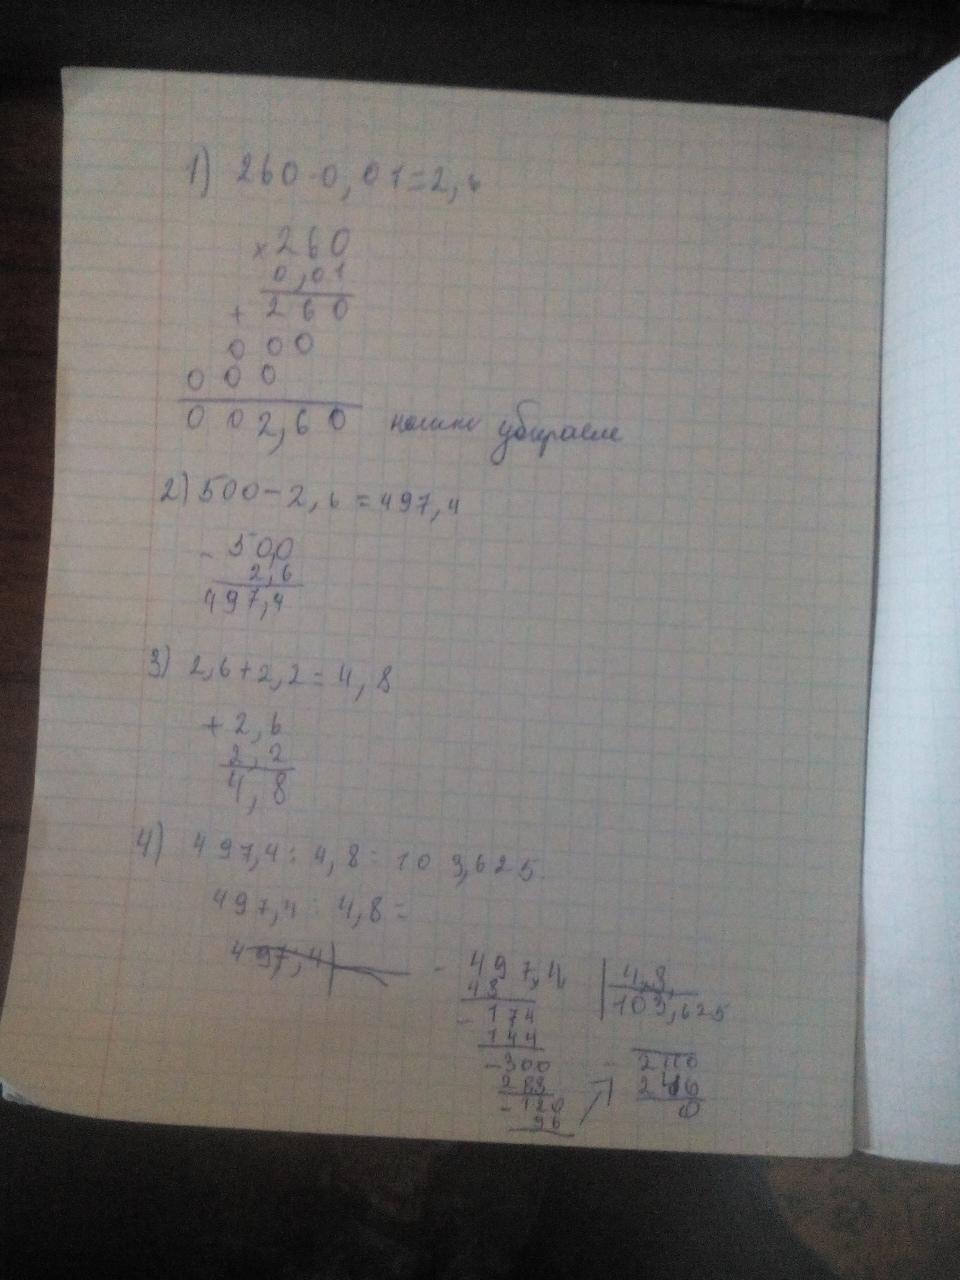 1) 260·0,01=2,6
×260
0,01
+ 260
000
000
002,60 убираем
2) 500-2,6=497,4
- 500
2,6
497,4
3) 2,6+2,2=4,8
+ 2,6
2,2
4,8
4) 497,4:4,8=103,625.
497,4:4,8=
497,4
- 497,4, 4,8,
48 103,625
- 174
144
- 300 - 240
288 240
- 120 0
96